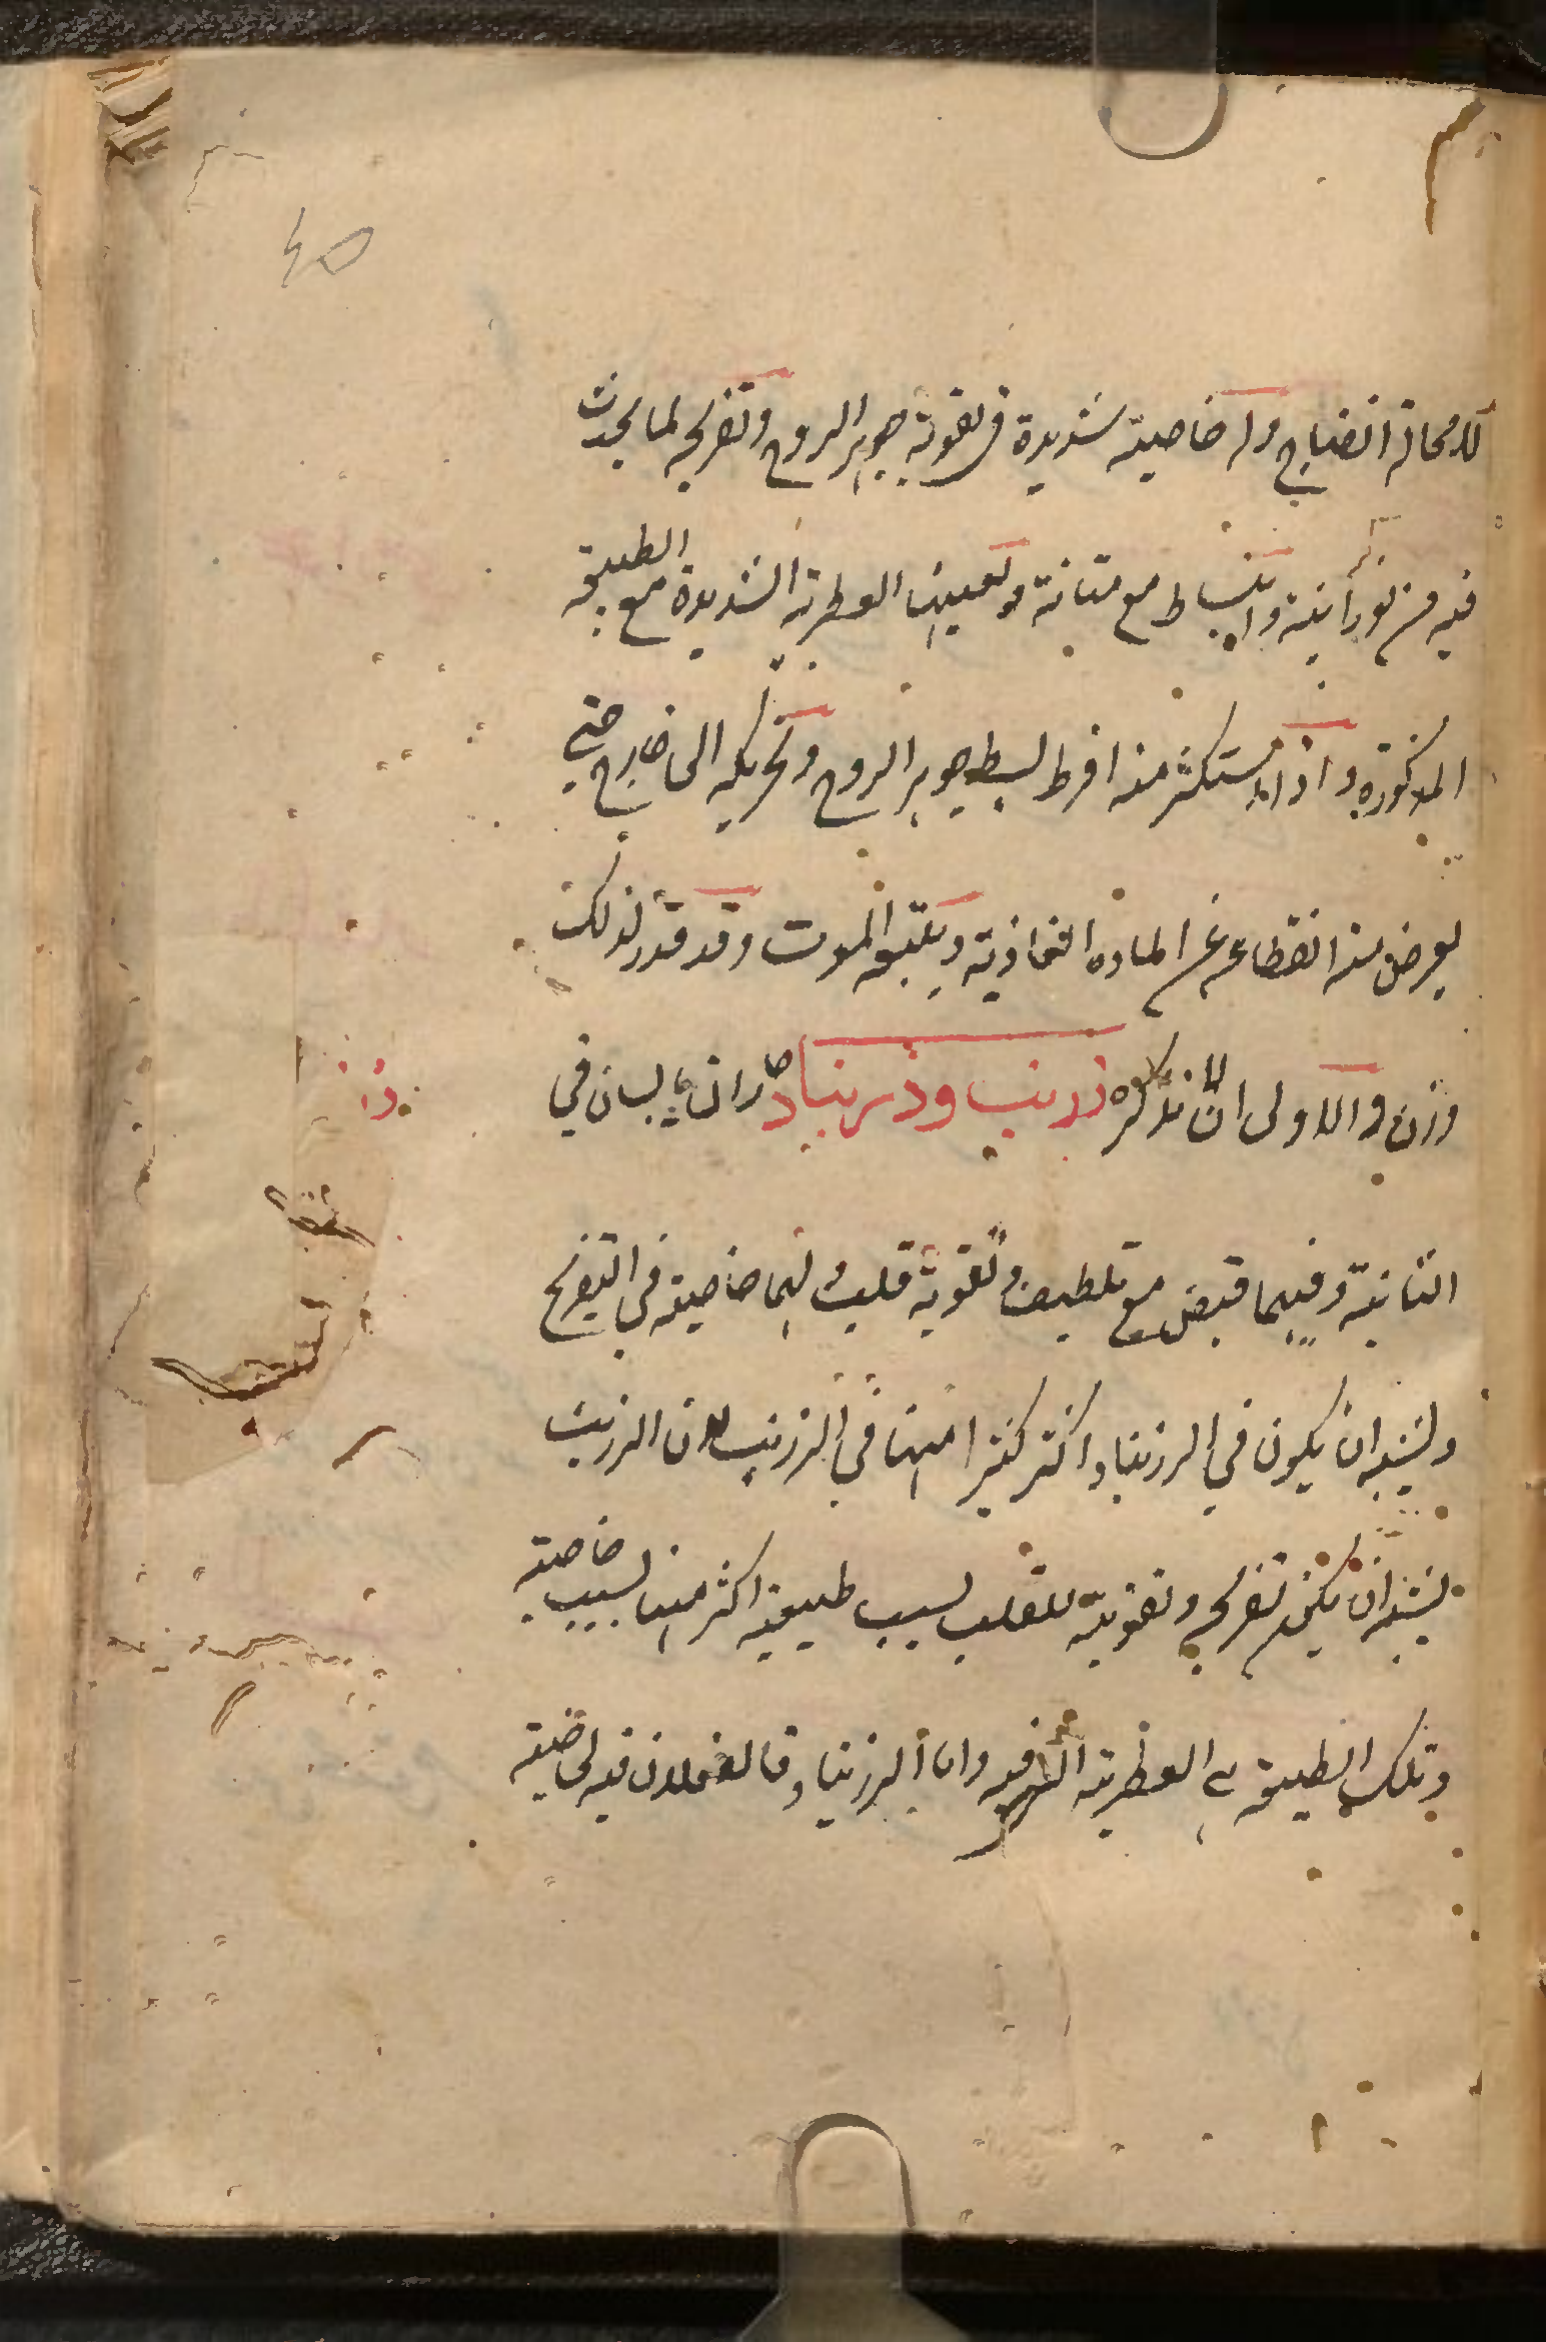 45
للامحالة انضاج وله خاصية شديدة في تقوية جوهر الروح وتفريحه لما يحدث
فيه من نورانية وانبساط مع متانة وتعينها العطرية الشديدة مع الطبيعة
المذكورة واذا استكثر منه افرط لبسط جوهر الروح وتحريكه الى خارج حتى
يعرض منه انقطاعه عن المادة الغاذية ويتبعه الموت وقد قدر لذلك
وزن والاولى ان لا نذكره زرنب وزرنباد حاران يابسان في
الثانية وفيهما قبض مع تلطيف وتقوية قلب ولهما خاصية في التفريح
ويشبه ان يكون في الزرنباد اكثر كثيرا منها في الزرنب لان الزرنب
يشبه ان يكون تفريحه وتقويته للقلب بسبب طبيعته اكثر منها بسبب خاصيته
وتلك الطبيعة هي العطرية التي فيه واما الزرنباد فالفعلان فيه لخاصية